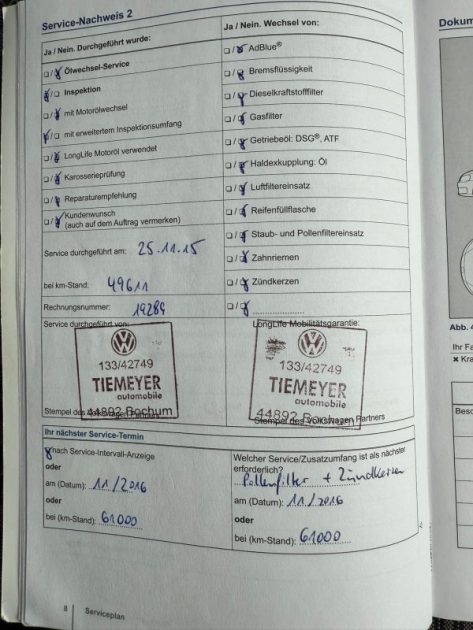 Service-Nachweis 2
Ja / Nein. Durchgeführt wurde:
Ölwechsel-Service
Inspektion
mit Motorölwechsel
mit erweitertem Inspektionsumfang
LongLife Motoröl verwendet
Karosserieprüfung
Reparaturempfehlung
Kundenwunsch
(auch auf dem Auftrag vermerken)
Service durchgeführt am: 25.11.15
bei km-Stand: 49611
Rechnungsnummer: 19284
Ja / Nein. Wechsel von:
AdBlue®
Bremsflüssigkeit
Dieselkraftstofffilter
Gasfilter
Getriebeöl: DSG®, ATF
Haldexkupplung: Öl
Luftfiltereinsatz
Reifenfüllflasche
Staub- und Pollenfiltereinsatz
Zahnriemen
Zündkerzen
Service durchgeführt von:
133/42749
TIEMEYER
automobile
44892 Bochum
Stempel des
LongLife Mobilitätsgarantie:
133/42749
TIEMEYER
automobile
44892 Bochum
Stempel des Volkswagen Partners
Ihr nächster Service-Termin
nach Service-Intervall-Anzeige
oder
am (Datum): 11/2016
oder
bei (km-Stand): 61000
Welcher Service/Zusatzumfang ist als nächster
erforderlich?
Pollenfilter + Zündkerzen
am (Datum): 11/2016
oder
bei (km-Stand): 61000
8
Serviceplan
Dokum
Abb. 4
Ihr Fa
Kra
Besc